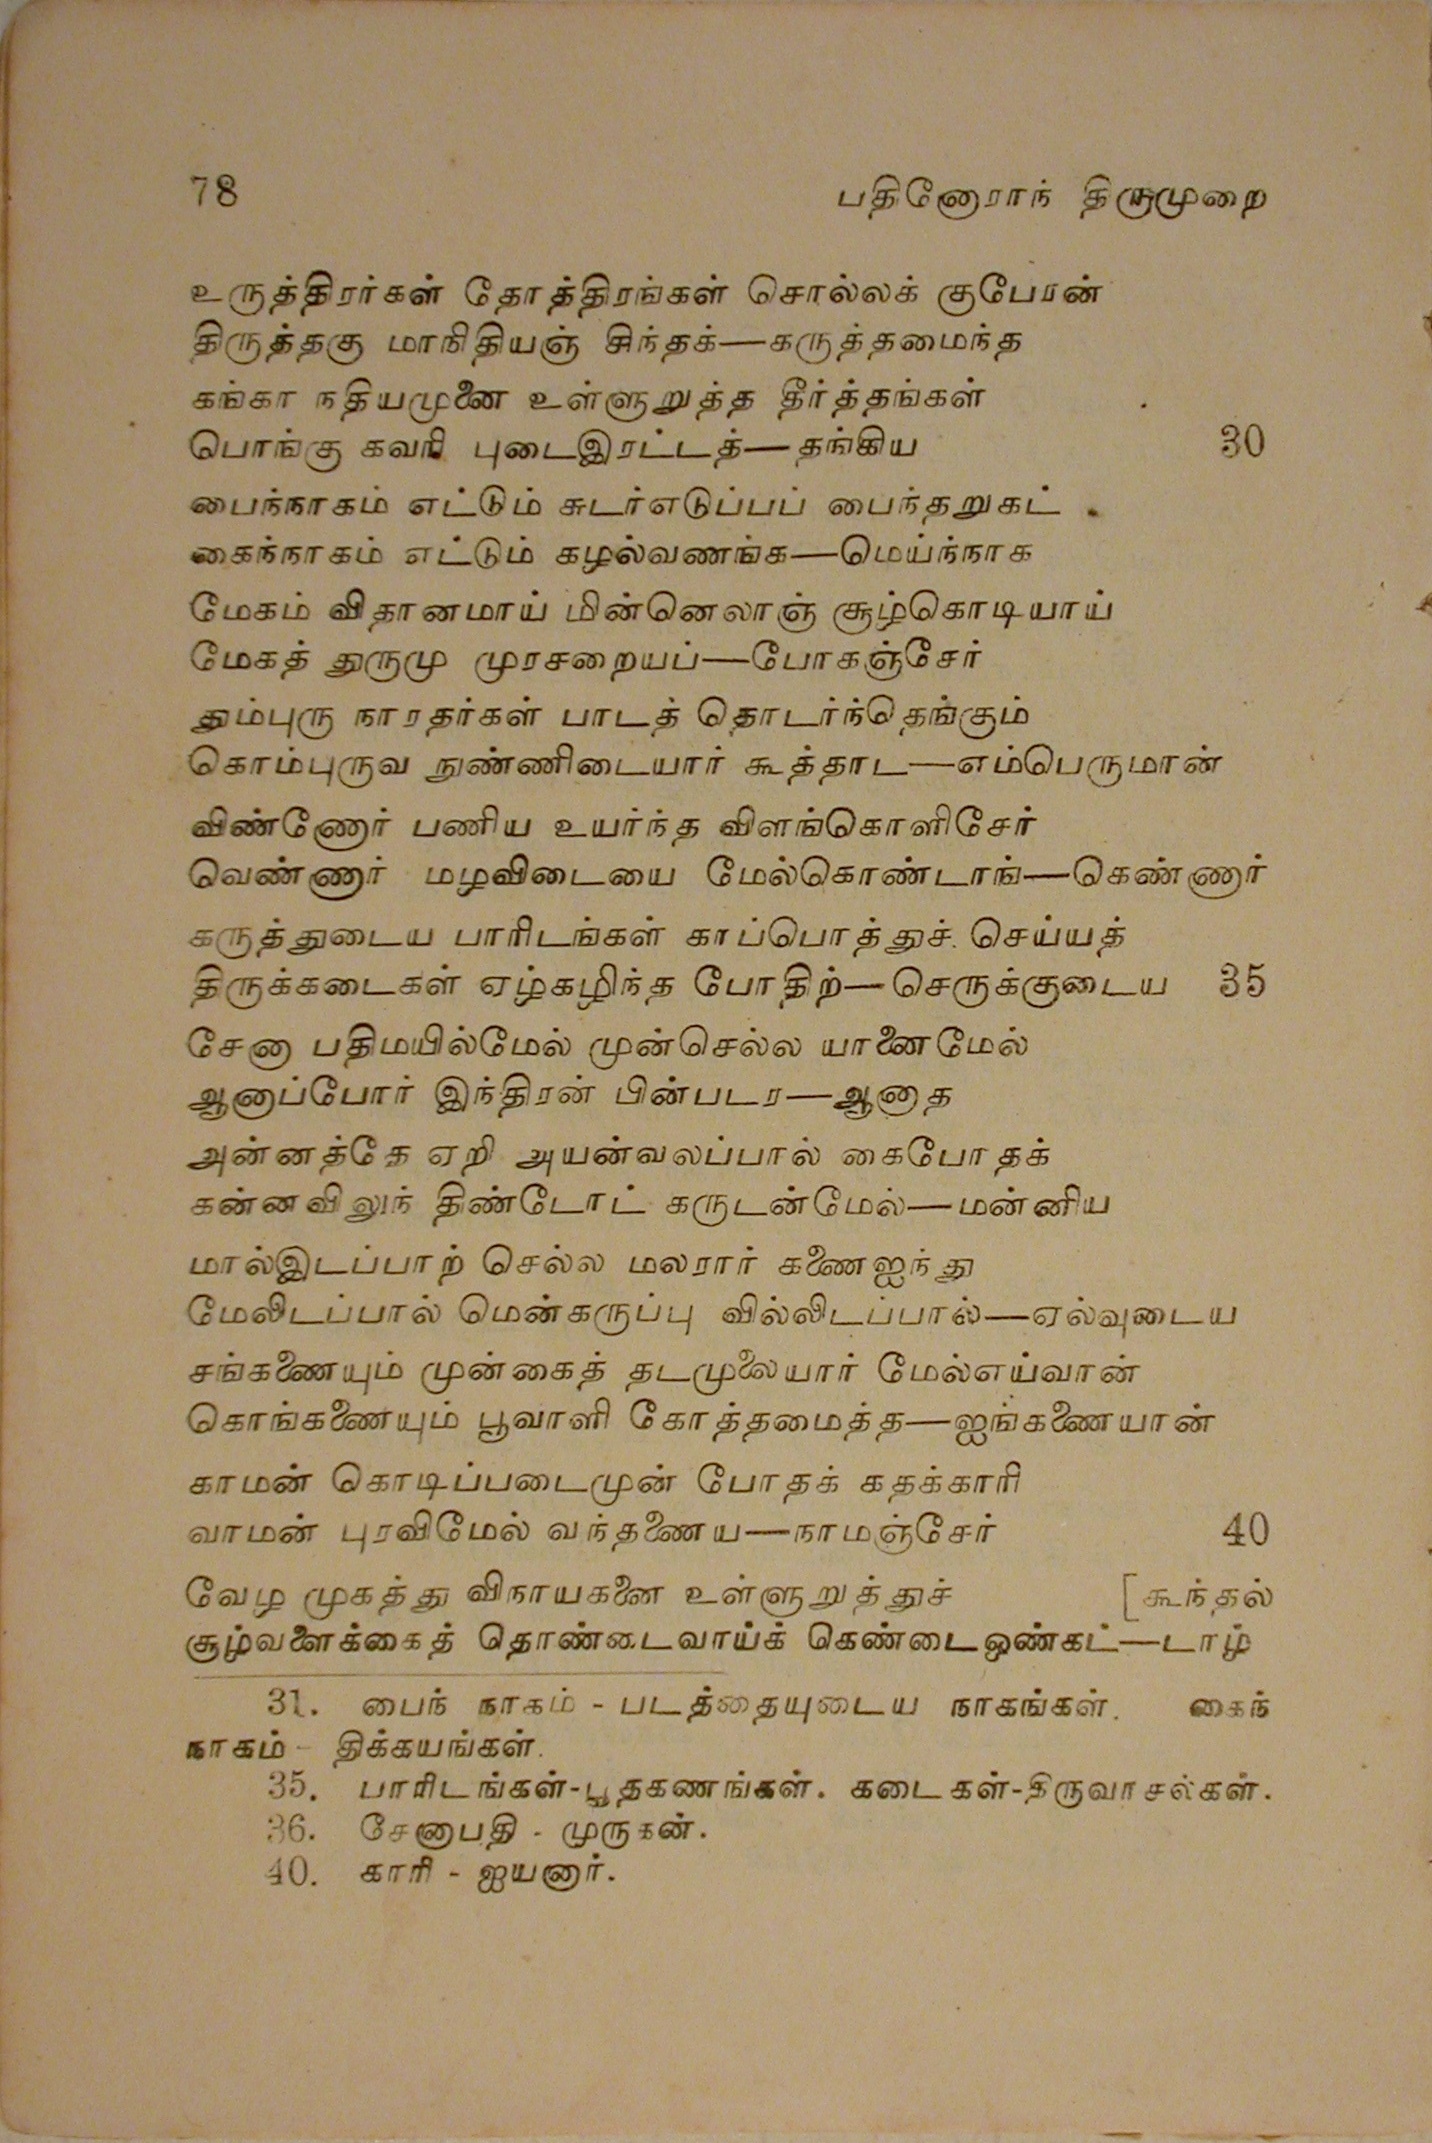 78 பதினோராந் திருமுறை
உருத்திரர்கள் தோத்திரங்கள் சொல்லக் குபேரன்
திருத்தகு மாநிதியஞ் சிந்தக்—கருத்தமைந்த
கங்கா நதியமுனை உள்ளுறுத்த தீர்த்தங்கள்
பொங்கு கவரி புடைஇரட்டத்—தங்கிய 30
பைந்நாகம் எட்டும் சுடர்எடுப்பப் பைந்தறுகட்
கைந்நாகம் எட்டும் கழல்வணங்க—மெய்ந்நாக
மேகம் விதானமாய் மின்னெலாஞ் சூழ்கொடியாய்
மேகத் துருமு முரசறையப்—போகஞ்சேர்
தும்புரு நாரதர்கள் பாடத் தொடர்ந்தெங்கும்
கொம்புருவ நுண்ணிடையார் கூத்தாட—எம்பெருமான்
விண்ணோர் பணிய உயர்ந்த விளங்கொளிசேர்
வெண்ணார் மழவிடையை மேல்கொண்டாங்—கெண்ணார்
கருத்துடைய பாரிடங்கள் காப்பொத்துச் செய்யத்
திருக்கடைகள் ஏழ்கழிந்த போதிற்—செருக்குடைய 35
சேனா பதிமயில்மேல் முன்செல்ல யானைமேல்
ஆனாப்போர் இந்திரன் பின்படர—ஆனாத
அன்னத்தே ஏறி அயன்வலப்பால் கைபோதக்
கன்னவிலுந் திண்டோட் கருடன்மேல்—மன்னிய
மால்இடப்பாற் செல்ல மலரார் கணைஐந்து
மேலிடப்பால் மென்கருப்பு வில்லிடப்பால்—ஏல்வுடைய
சங்கணையும் முன்கைத் தடமுலையார் மேல்எய்வான்
கொங்கணையும் பூவாளி கோத்தமைத்த—ஐங்கணையான்
காமன் கொடிப்படைமுன் போதக் கதக்காரி
வாமன் புரவிமேல் வந்தணைய—நாமஞ்சேர் 40
வேழ முகத்து விநாயகனை உள்ளுறுத்துச் [கூந்தல்
சூழ்வளைக்கைத் தொண்டைவாய்க் கெண்டைஒண்கட்—டாழ்
31. பைந் நாகம் - படத்தையுடைய நாகங்கள். கைந்
நாகம் - திக்கயங்கள்.
35. பாரிடங்கள்-பூதகணங்கள். கடைகள்-திருவாசல்கள்.
36. சேனாபதி - முருகன்.
40. காரி - ஐயனார்.